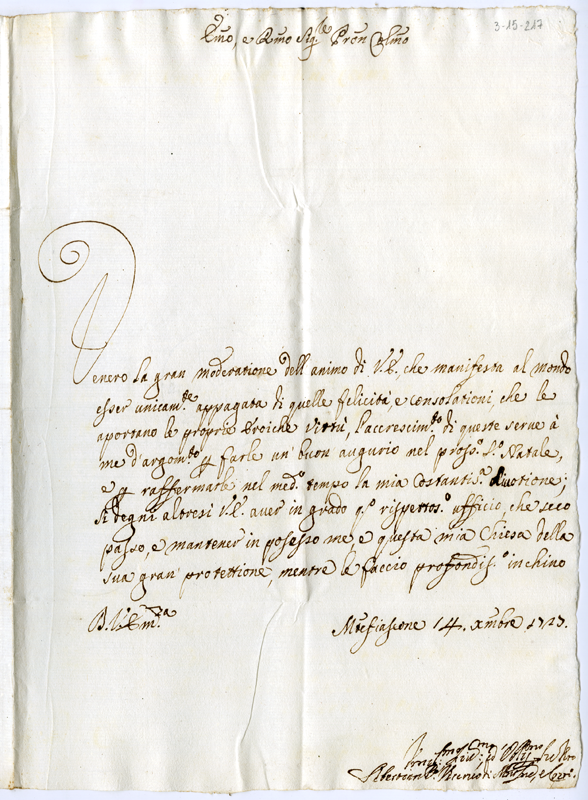 3-15-217
Emo, e Rmo Sig.re Pron Colmo
Venero la gran moderatione dell animo di V.E., che manifesta al mondo
esser unicam.te appagata di quelle felicità, e consolationi, che le
aportano le proprie Eroiche Virtù, l'accrescim.to di queste serve à
me d'argom.to p farle un' buon augurio nel pross.o S.o Natale,
e p raffermarle nel med.o tempo la mia costantis.a divotione;
Si degni altresi V.E. aver in grado q.o rispettos.o ufficio, che seco
passo, e mantener in posesso me e questa mia Chiesa della
sua gran' protettione, mentre le faccio profondis.o inchino
D. V. Em.za
Mtefiascone 14. Xmbre 1717.